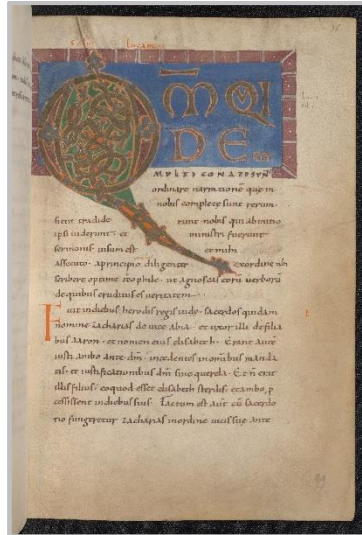 QM QI
DE
MULTI CONATI SUNT
ordinare narrationē que in
nobis complete sunt rerum
sicut tradide runt nobis qui ab initio
ipsi uiderunt et ministri fuerunt
sermonis uisum est et mihi
assecuto a principio diligenter ex ordine tibi
scribere optime theophile ut agnoscas eorū uerborū
de quibus eruditus es ueritatem
Fuit in diebus herodis regis iude sacerdos quidam
nomine zacharias de uice abia et uxor illi de filia
bus aaron et nomen eius elisabeth Erant autē
iusti ambo ante dm̄ incedentes in omibus manda
tis et iustificationibus dn̄i sine querela Et n̄ erat
illis filius eo quod esset elisabeth sterilis et ambo p
cessissent in diebus suis Factum est aūt cū sacerdo
tio fungeretur zacharias in ordine uicis sue ante